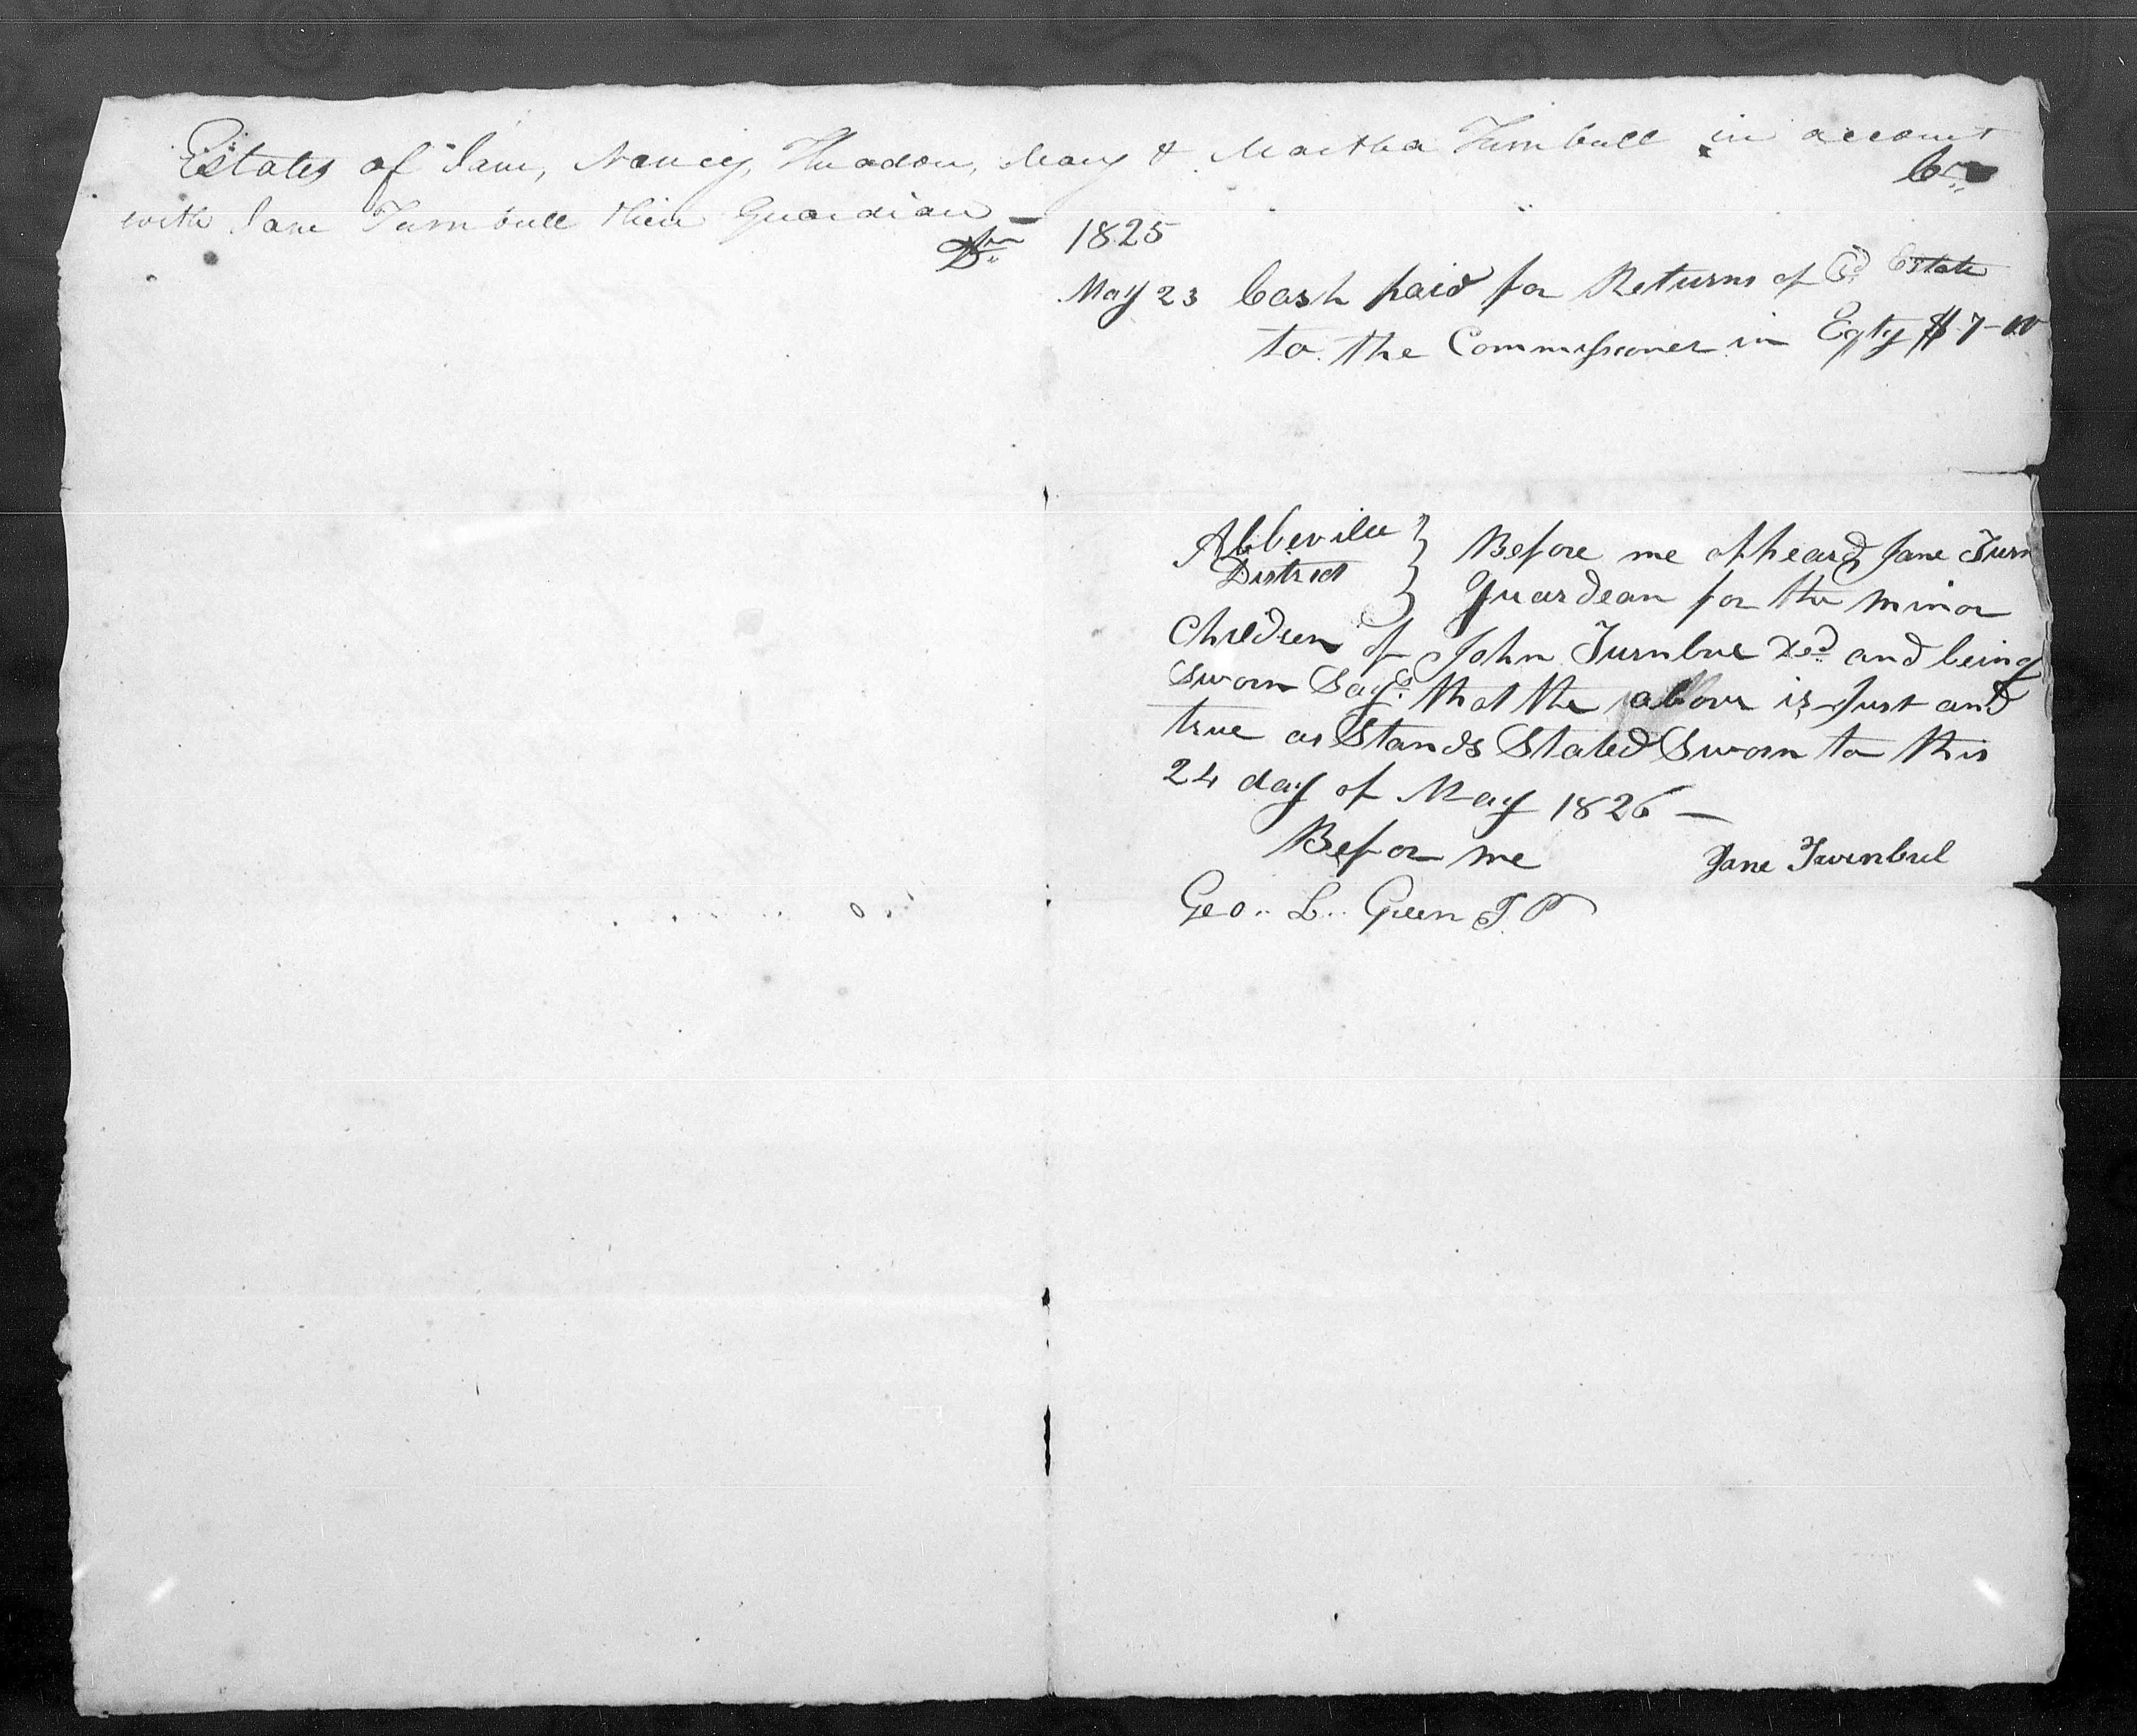 Estates of Jane, Nancy, Theadore, Mary & Martha Turnbull in account
with Jane Turnbull their Guardian —
Dr.
Cr.
1825
May 23 Cash paid for Returns of Sd Estate
to the Commissioner in Eqty $7-00
Abbeville District } Before me apheard Jane Turn
Guardean for the minor
Children of John Turnbul Decd and being
Sworn Says that the above is Just and
true as Stands Stated Sworn to this
24 day of May 1826 —
Befor me Jane Turnbul
Geo.. L.. Green J P